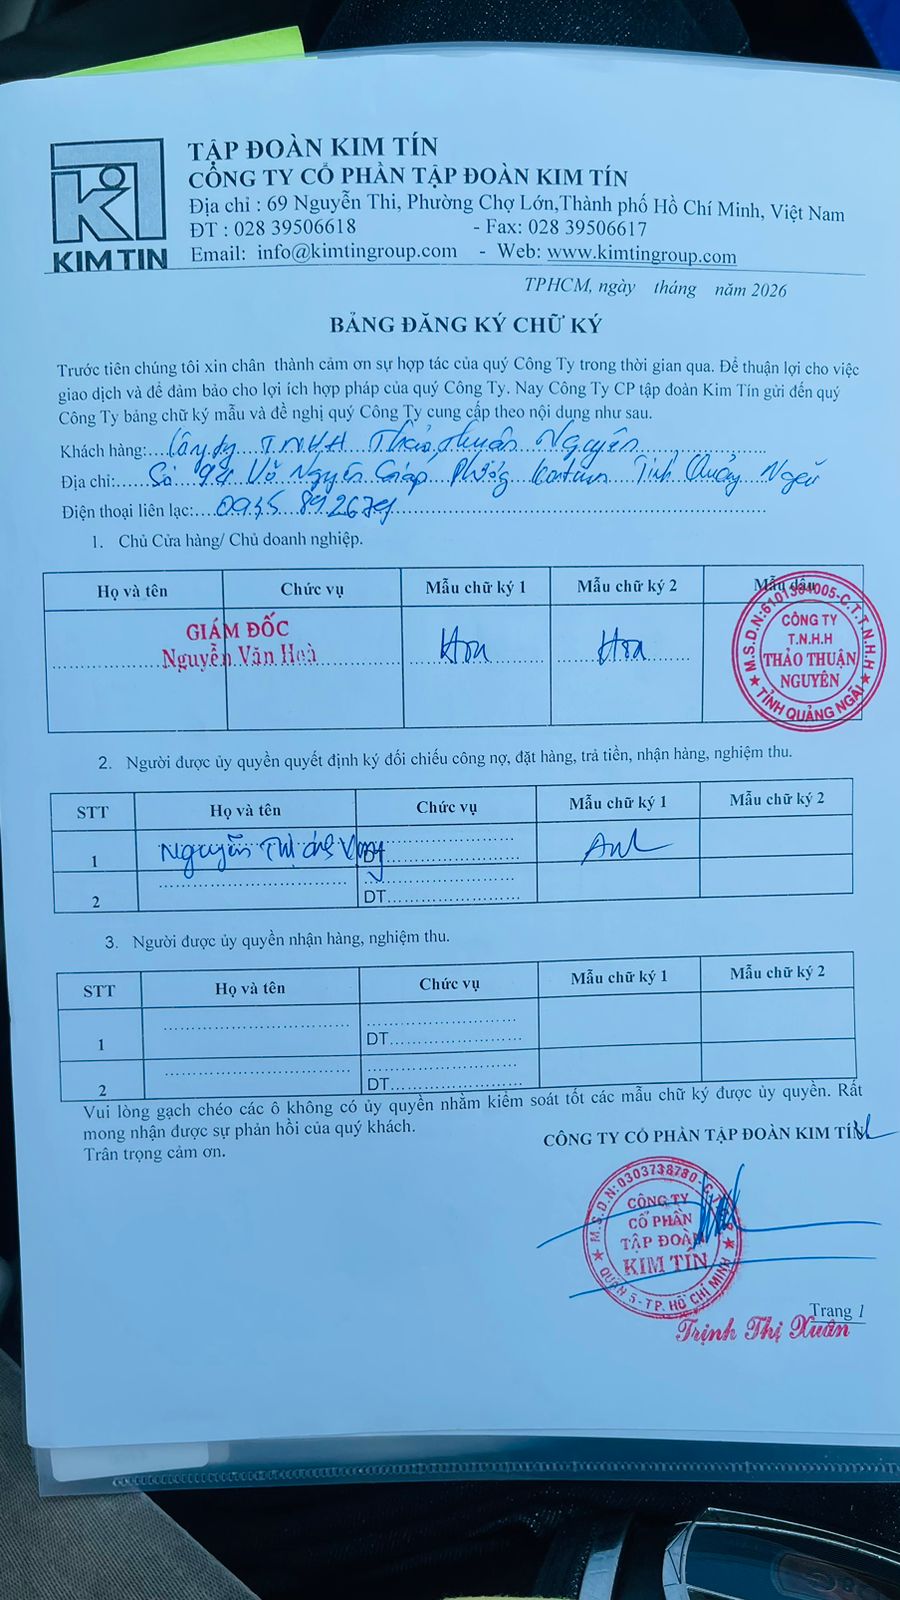 TẬP ĐOÀN KIM TÍN
CÔNG TY CỔ PHẦN TẬP ĐOÀN KIM TÍN
Địa chỉ : 69 Nguyễn Thi, Phường Chợ Lớn,Thành phố Hồ Chí Minh, Việt Nam
ĐT : 028 39506618 - Fax: 028 39506617
Email: info@kimtingroup.com - Web: www.kimtingroup.com
KIM TIN
TPHCM, ngày tháng năm 2026
BẢNG ĐĂNG KÝ CHỮ KÝ
Trước tiên chúng tôi xin chân thành cảm ơn sự hợp tác của quý Công Ty trong thời gian qua. Để thuận lợi cho việc
giao dịch và để đảm bảo cho lợi ích hợp pháp của quý Công Ty. Nay Công Ty CP tập đoàn Kim Tín gửi đến quý
Công Ty bảng chữ ký mẫu và đề nghị quý Công Ty cung cấp theo nội dung như sau.
Khách hàng: Công ty TNHH Thảo Thuận Nguyên
Địa chỉ: Số Võ Nguyên Giáp Phường Kontum Tỉnh Quảng Ngãi
Điện thoại liên lạc: 0935 892679
1. Chủ Cửa hàng/ Chủ doanh nghiệp.
Họ và tên Chức vụ Mẫu chữ ký 1 Mẫu chữ ký 2 Mẫu dấu
GIÁM ĐỐC
Nguyễn Văn Hoà Hoa Hoa
M.S.D.N:6101364005-C.T.T.N.H.H
CÔNG TY
T.N.H.H
THẢO THUẬN
NGUYÊN
TỈNH QUẢNG NGÃI
2. Người được ủy quyền quyết định ký đối chiếu công nợ, đặt hàng, trả tiền, nhận hàng, nghiệm thu.
STT Họ và tên Chức vụ Mẫu chữ ký 1 Mẫu chữ ký 2
1 Nguyễn Thị DT
2 DT
3. Người được ủy quyền nhận hàng, nghiệm thu.
STT Họ và tên Chức vụ Mẫu chữ ký 1 Mẫu chữ ký 2
1 DT
2 DT
Vui lòng gạch chéo các ô không có ủy quyền nhằm kiểm soát tốt các mẫu chữ ký được ủy quyền. Rất
mong nhận được sự phản hồi của quý khách.
Trân trọng cảm ơn.
CÔNG TY CỔ PHẦN TẬP ĐOÀN KIM TÍN
M.S.D.N:0303738780
CÔNG TY
CỔ PHẦN
TẬP ĐOÀN
KIM TÍN
QUẬN 5-T.P. HỒ CHÍ MINH
Trang 1
Trịnh Thị Xuân